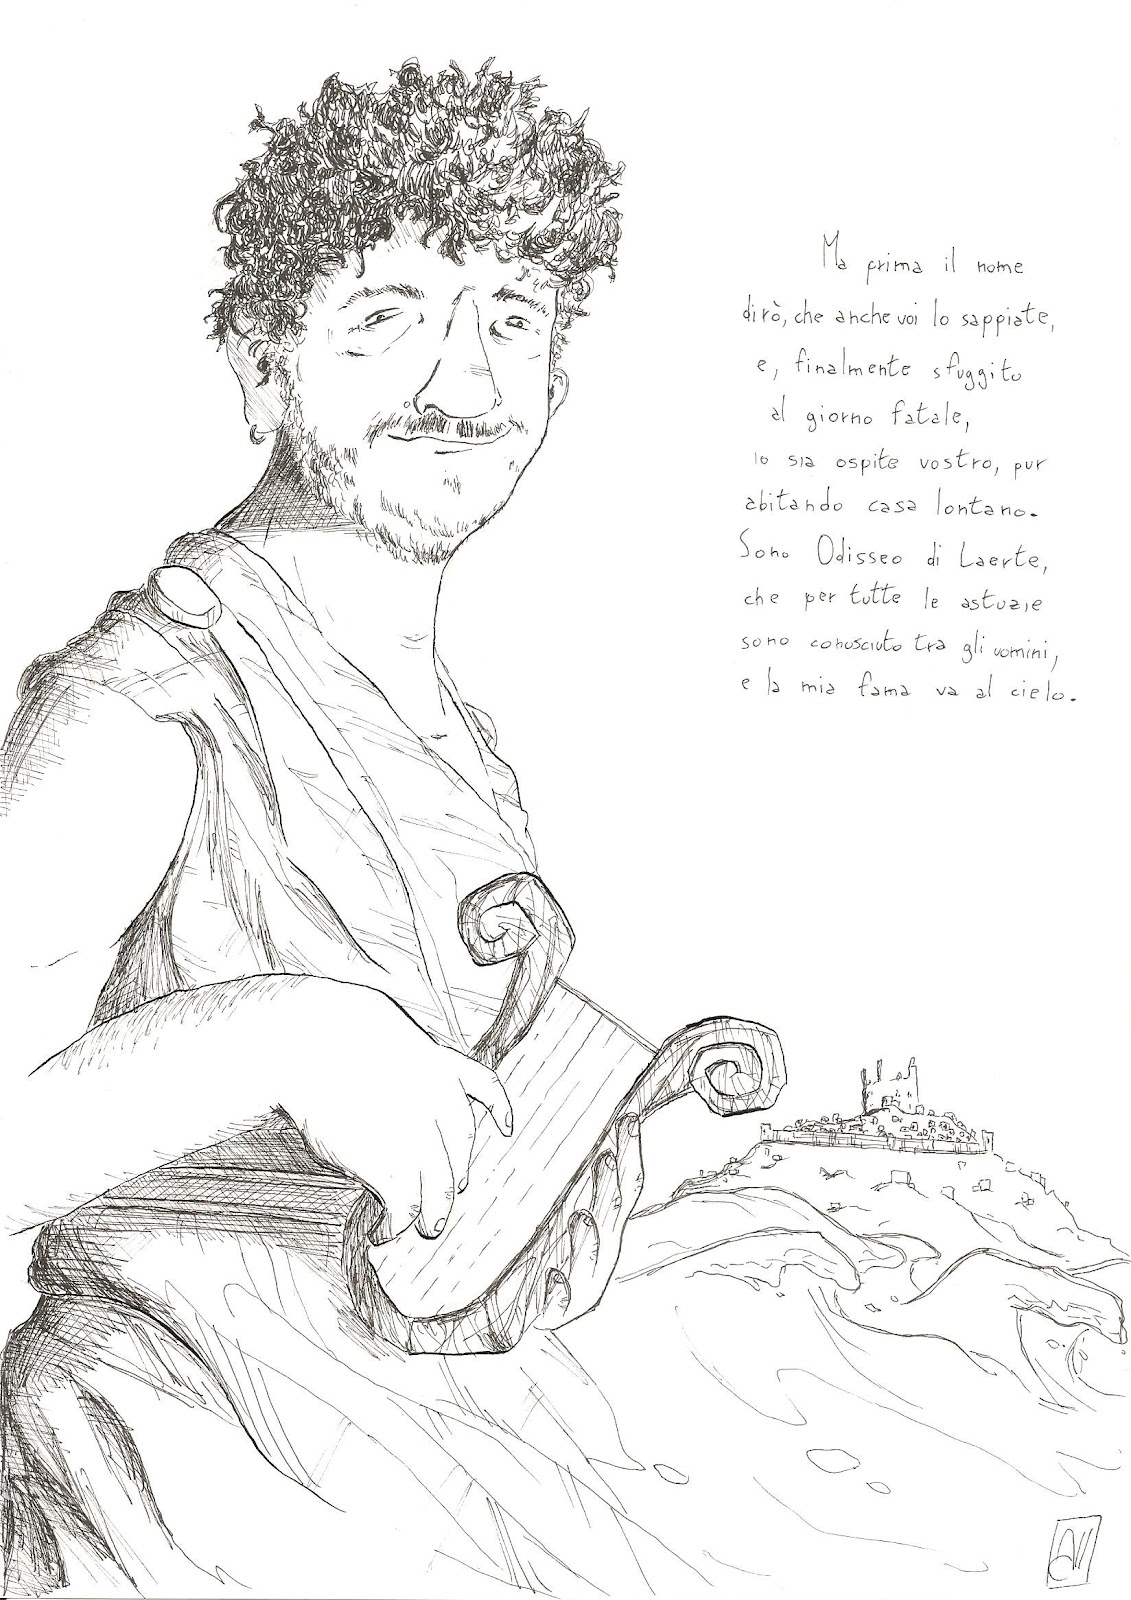 Ma prima il nome
dirò, che anche voi lo sappiate,
e, finalmente sfuggito
al giorno fatale,
io sia ospite vostro, pur
abitando casa lontano.
Sono Odisseo di Laerte,
che per tutte le astuzie
sono conosciuto tra gli uomini,
e la mia fama va al cielo.